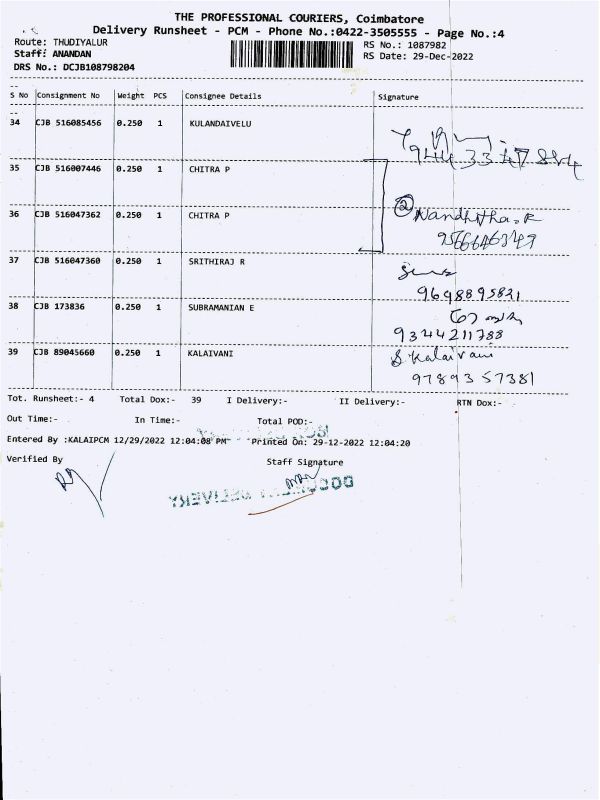 THE PROFESSIONAL COURIERS, Coimbatore
Delivery Runsheet - PCM - Phone No.:0422-3505555 - Page No.:4
Route: THUDIYALUR
RS No.: 1087982
Staff: ANANDAN
RS Date: 29-Dec-2022
DRS No.: DCJB108798204
S No Consignment No Weight PCS Consignee Details Signature
34 CJB 516085456 0.250 1 KULANDAIVELU
35 CJB 516007446 0.250 1 CHITRA P
36 CJB 516047362 0.250 1 CHITRA P
② Nandhitha.R
9566646349
37 CJB 516047360 0.250 1 SRITHIRAJ R
9698895821
38 CJB 173836 0.250 1 SUBRAMANIAN E
9344211788
39 CJB 89045660 0.250 1 KALAIVANI
S Kalaivani
9789357381
Tot. Runsheet:- 4 Total Dox:- 39 I Delivery:- II Delivery:- RTN Dox:-
Out Time:- In Time:- Total POD:-
Entered By :KALAIPCM 12/29/2022 12:04:08 PM Printed On: 29-12-2022 12:04:20
Verified By Staff Signature
DOCUMENT DELIVERY